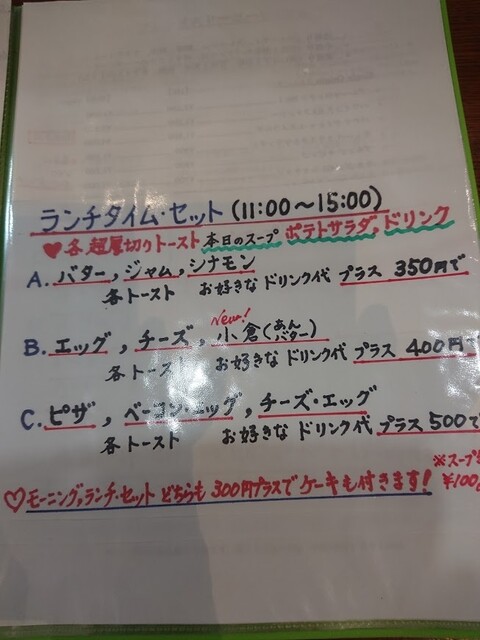 ランチタイム・セット (11:00～15:00)
♥各 超厚切りトースト 本日のスープ ポテトサラダ,ドリンク
A. バター, ジャム, シナモン
各トースト お好きな ドリンク代 プラス 350円で
New!
B. エッグ, チーズ, 小倉(あんバター)
各トースト お好きな ドリンク代 プラス 400円
C. ピザ, ベーコン・エッグ, チーズ・エッグ
各トースト お好きな ドリンク代 プラス 500で
※スープ
♡モーニング,ランチ・セット どちらも 300円プラスでケーキも付きます!
¥100